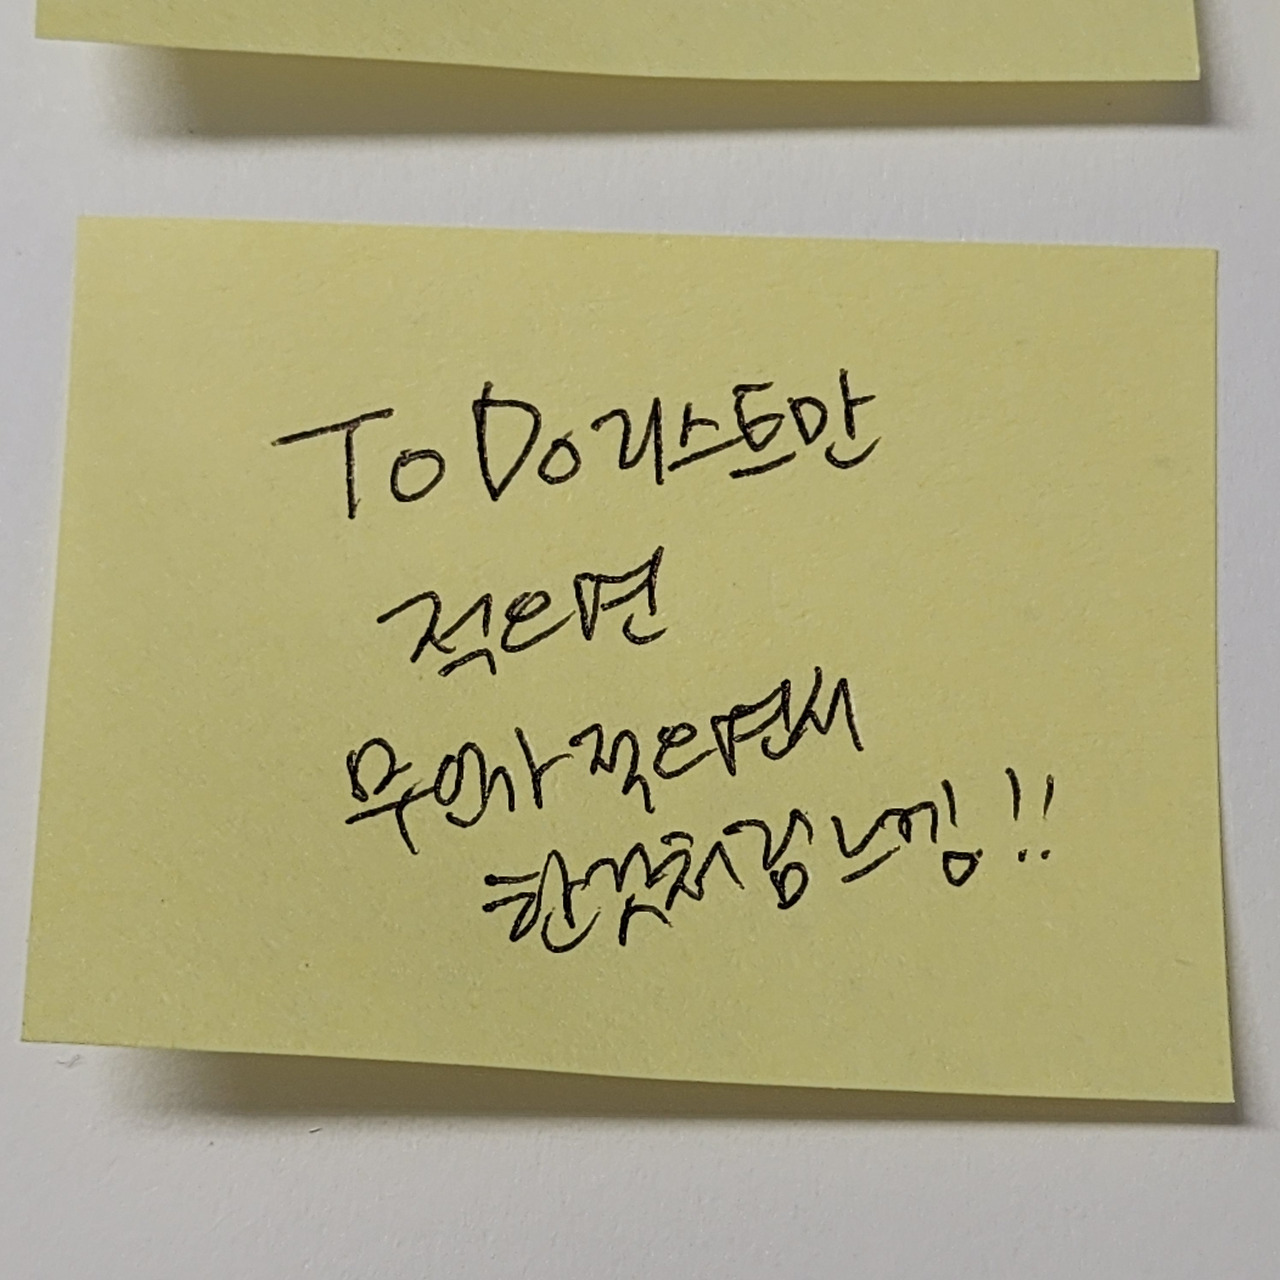 To Do 리스트만
적으면
무언가 적으면서
한것처럼 느낌!!